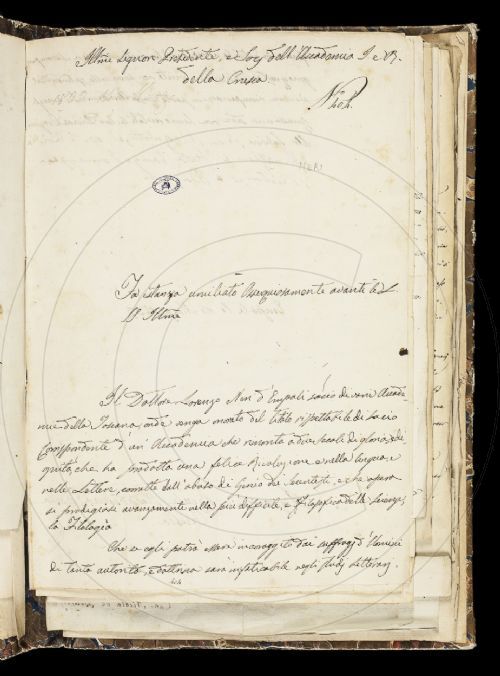 Illmi Signori Presidente, e Socj dell'Accademia I. e R.
della Crusca
N 404.
Fa istanza umiliato Ossequiosamente avanti le L.
Illme
Il Dottore Lorenzo Neri d'Empoli socio di varie Accade-
mie della Toscana, onde venga onorato del titolo rispettabile di Socio
Corrispondente d'un'Accademia che rimonta a due secoli di gloria, e di
che ha prodotto una felice Rivoluzione e nella lingua, e
nelle Lettere, corrotte dall'abuso di Genio dei Secentisti, e che opera
si prodigiosi avanzamenti nella più difficile, e Filosofica delle scienze,
la Filologia
Che se egli potrà essere incoraggito dai suffragj d'Uomini
di tanta autorità, e dottrina sarà infaticabile negli studj Letterarj.
404